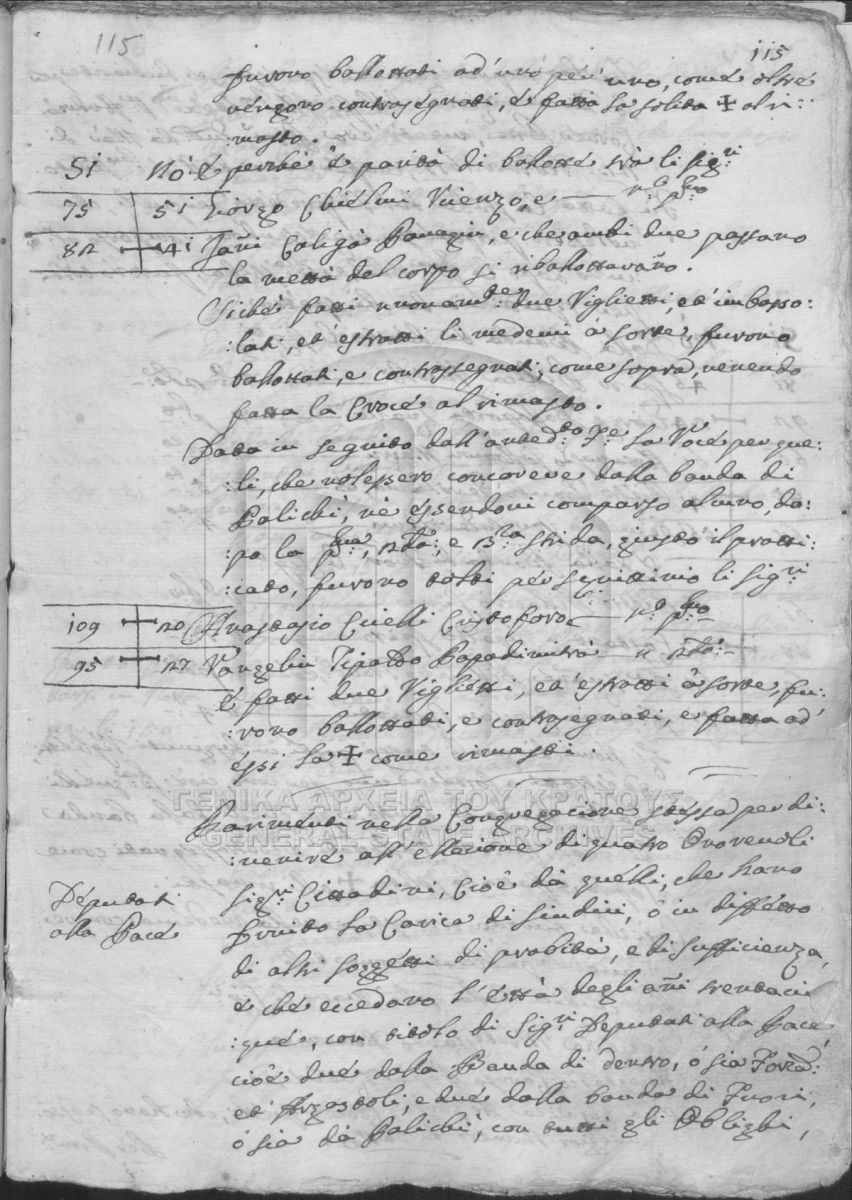 115
115
furono ballottati ad' uno per' uno, come oltre
vengono contrasegnati, e fatta la solita ✝ al ri:
:masto.
Si Nò
E perche è parità di ballotte trà li Sigri
75 51 Giorgo Chielmi Vicenzo, e — no pmo
82 41 Jani Caligà Panagin, e che ambi due passano
la mettà del corpo si riballottarano.
Siche fatti nuovamte due Viglietti, et' imbosso:
:lati, et' estratti li medemi à sorte, furono
ballottati, e contrassegnati, come sopra, venendo
fatta la Croce al rimasto.
Data in seguito dall' anteddto la Voce per que:
:li, che volessero concorere dalla banda di
Palichi, nè essendovi comparso alcuno, do:
:po la pma, 2da, e 3za strida, giusto il pratti:
:cato, furono tolti per scruttinio li Sigri
109 20 Anastasio Cuelli Cristoforo — no pmo
95 27 Vangelin Tipaldo Papadimitrà — n 2do
e fatti due Viglietti, et' estratti à sorte, fu:
:rono ballottati, e contrasegnati, e fatta ad'
essi la ✝ come rimasti.
ΓΕΝΙΚΑ ΑΡΧΕΙΑ ΤΟΥ ΚΡΑΤΟΥΣ
GENERAL STATE ARCHIVES
Parimenti nella Congregacione stessa per di:
:venire all' ellecione di quatro Onorevoli
Deputati
alla Pace
Sigri Cittadini, Cioè dà quelli, che hano
fruito la Carica di Sindici, ò in diffetto
di altri soggetti di probità, e di sufficienza,
e che eccedano l' età degli ani trentacin
:que, con titolo di Sigri Deputati alla Pace,
cioè due dalla Banda di dentro, ò sia Forza:
et' Argostoli, e due dalla banda di Fuori,
ò sia dà Palichi, con tutti gli Oblighi,